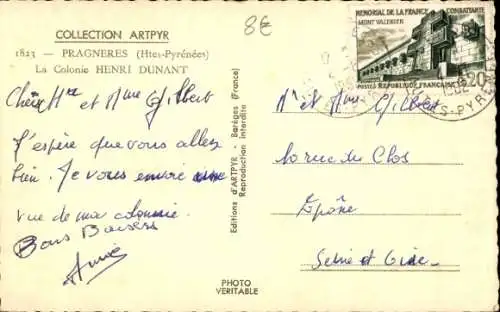 COLLECTION ARTPYR
1823 — PRAGNERES (Htes-Pyrénées)
La Colonie HENRI DUNANT
8€
Chers Mr et Mme Gilbert
J'espère que vous allez
bien. Je vous envoie une
vue de ma colonie.
Bons Baisers
Editions d'ARTPYR - Barèges (France)
Reproduction interdite
PHOTO
VERITABLE
MEMORIAL DE LA FRANCE COMBATTANTE
MONT VALERIEN
POSTES REPUBLIQUE FRANÇAISE 0,20
Mr et Mme Gilbert
rue du Clos
Epône
Seine et Oise